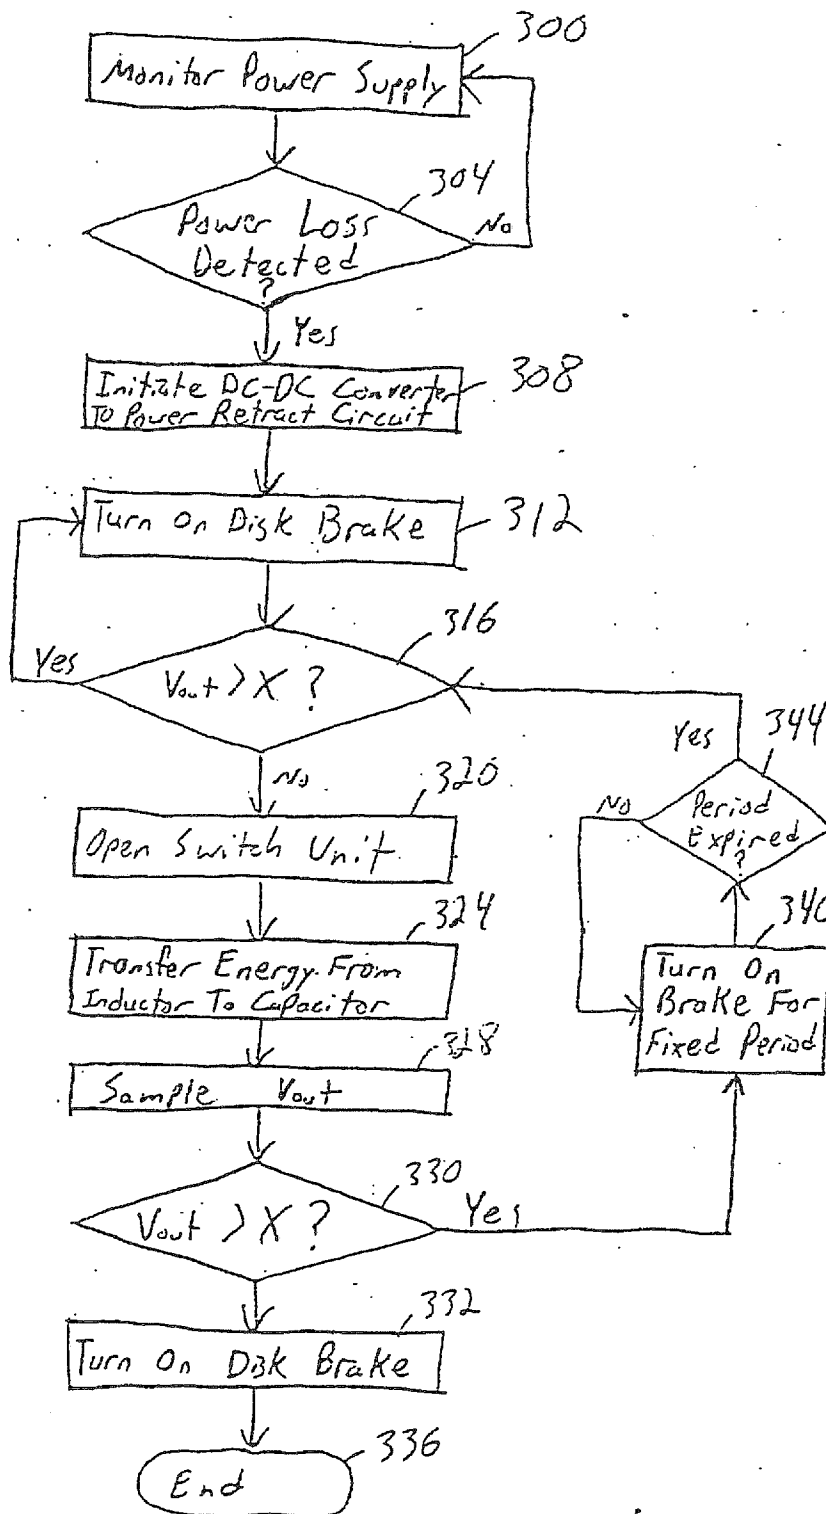 300
Monitor Power Supply
304
Power Loss
Detected
?
No
Yes
Initiate DC-DC Converter
To Power Retract Circuit
308
Turn On Disk Brake
312
316
Vout > X ?
Yes
No
320
Open Switch Unit
324
Transfer Energy From
Inductor To Capacitor
328
Sample Vout
330
Vout > X ?
Yes
332
Turn On Disk Brake
336
End
344
Yes
No
Period
Expired
?
340
Turn On
Brake For
Fixed Period